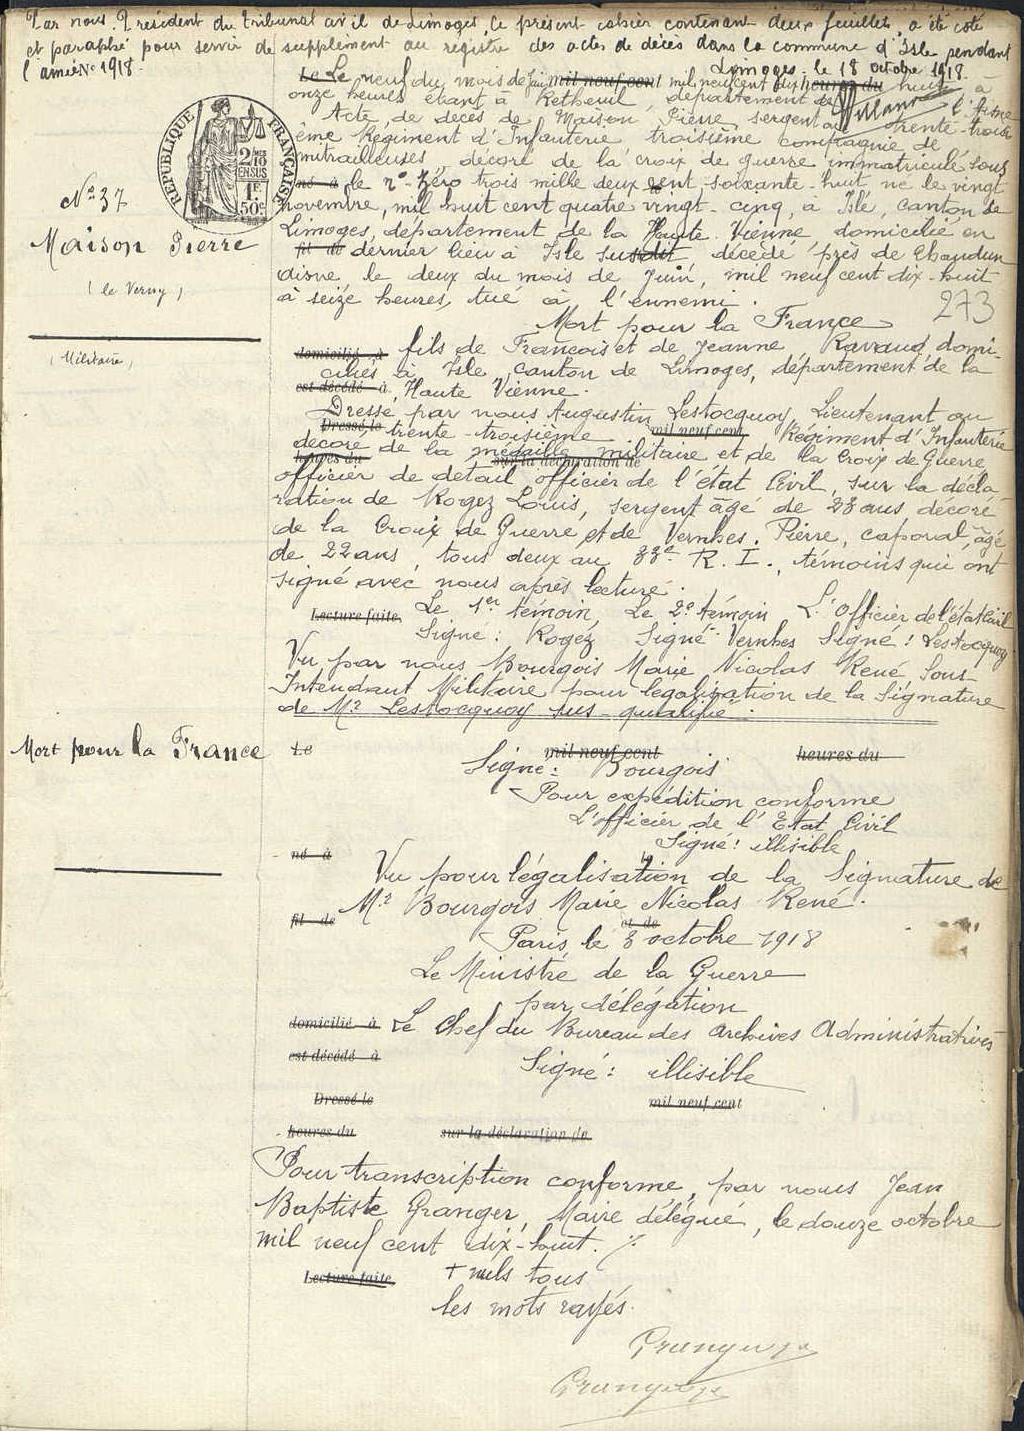 Par nous Président du tribunal civil de Limoges, le présent cahier contenant deux feuillets, a été coté
et paraphé pour servir de supplément au registre des actes de décès dans la commune d'Isle pendant
l'année 1918.
Limoges le 18 octobre 1918.
Le Le neuf du mois de Juin mil neuf cent mil neuf cent dix heures du huit à
onze heures étant à Retheuil, département de l'Aisne
Acte de décès de Maison Pierre, sergent au trente-trois
ème Régiment d'Infanterie troisième compagnie de
mitrailleuses, décoré de la croix de guerre immatriculé sous
né à le no zéro trois mille deux cent soixante-huit, né le vingt
novembre, mil huit cent quatre vingt-cinq, à Isle, canton de
Limoges, département de la Haute Vienne domicilié en
fil de dernier lieu à Isle susdit, décédé près de Chaudun
Aisne, le deux du mois de Juin, mil neuf cent dix-huit
à seize heures, tué à l'ennemi.
RÉPUBLIQUE FRANÇAISE
2/10mes EN SUS
1F 50c
No 37
Maison Pierre
(le Verny)
(Militaire)
273
Mort pour la France
domicilié à fils de François et de Jeanne Ravaud domi-
ciliés à Isle, canton de Limoges, département de la
est décédé à Haute Vienne.
Dressé par nous Augustin Lestocquoy, Lieutenant au
Dressé le trente-troisième mil neuf cent Régiment d'Infanterie
décoré de la médaille militaire et de la Croix de Guerre
heures du sur la déclaration de
officier de détail officier de l'état Civil, sur la décla-
ration de Rogez Louis, sergent âgé de 23 ans décoré
de la Croix de Guerre et de Vernhes Pierre, caporal, âgé
de 22 ans, tous deux au 33e R. I., témoins qui ont
signé avec nous après lecture.
Lecture faite, Le 1er témoin, Le 2e témoin L'officier de l'état Civil
Signé: Rogez Signé: Vernhes Signé: Lestocquoy
Vu par nous Bourgois Marie Nicolas René Sous
Intendant Militaire pour légalisation de la Signature
de Mr Lestocquoy sus-qualifié.
Mort pour la France
Le mil neuf cent heures du
Signé: Bourgois
Pour expédition conforme
L'officier de l'État Civil
Signé: illisible
né à
Vu pour légalisation de la Signature de
Mr Bourgois Marie Nicolas René.
fil de et de
Paris, le 3 octobre 1918
Le Ministre de la Guerre
par délégation
domicilié à Le Chef du Bureau des Archives Administratives
est décédé à Signé: illisible
Dressé le mil neuf cent
heures du sur la déclaration de
Pour transcription conforme, par nous Jean
Baptiste Granger, Maire délégué, le douze octobre
mil neuf cent dix-huit. /.
Lecture faite, + nuls tous
les mots rayés.